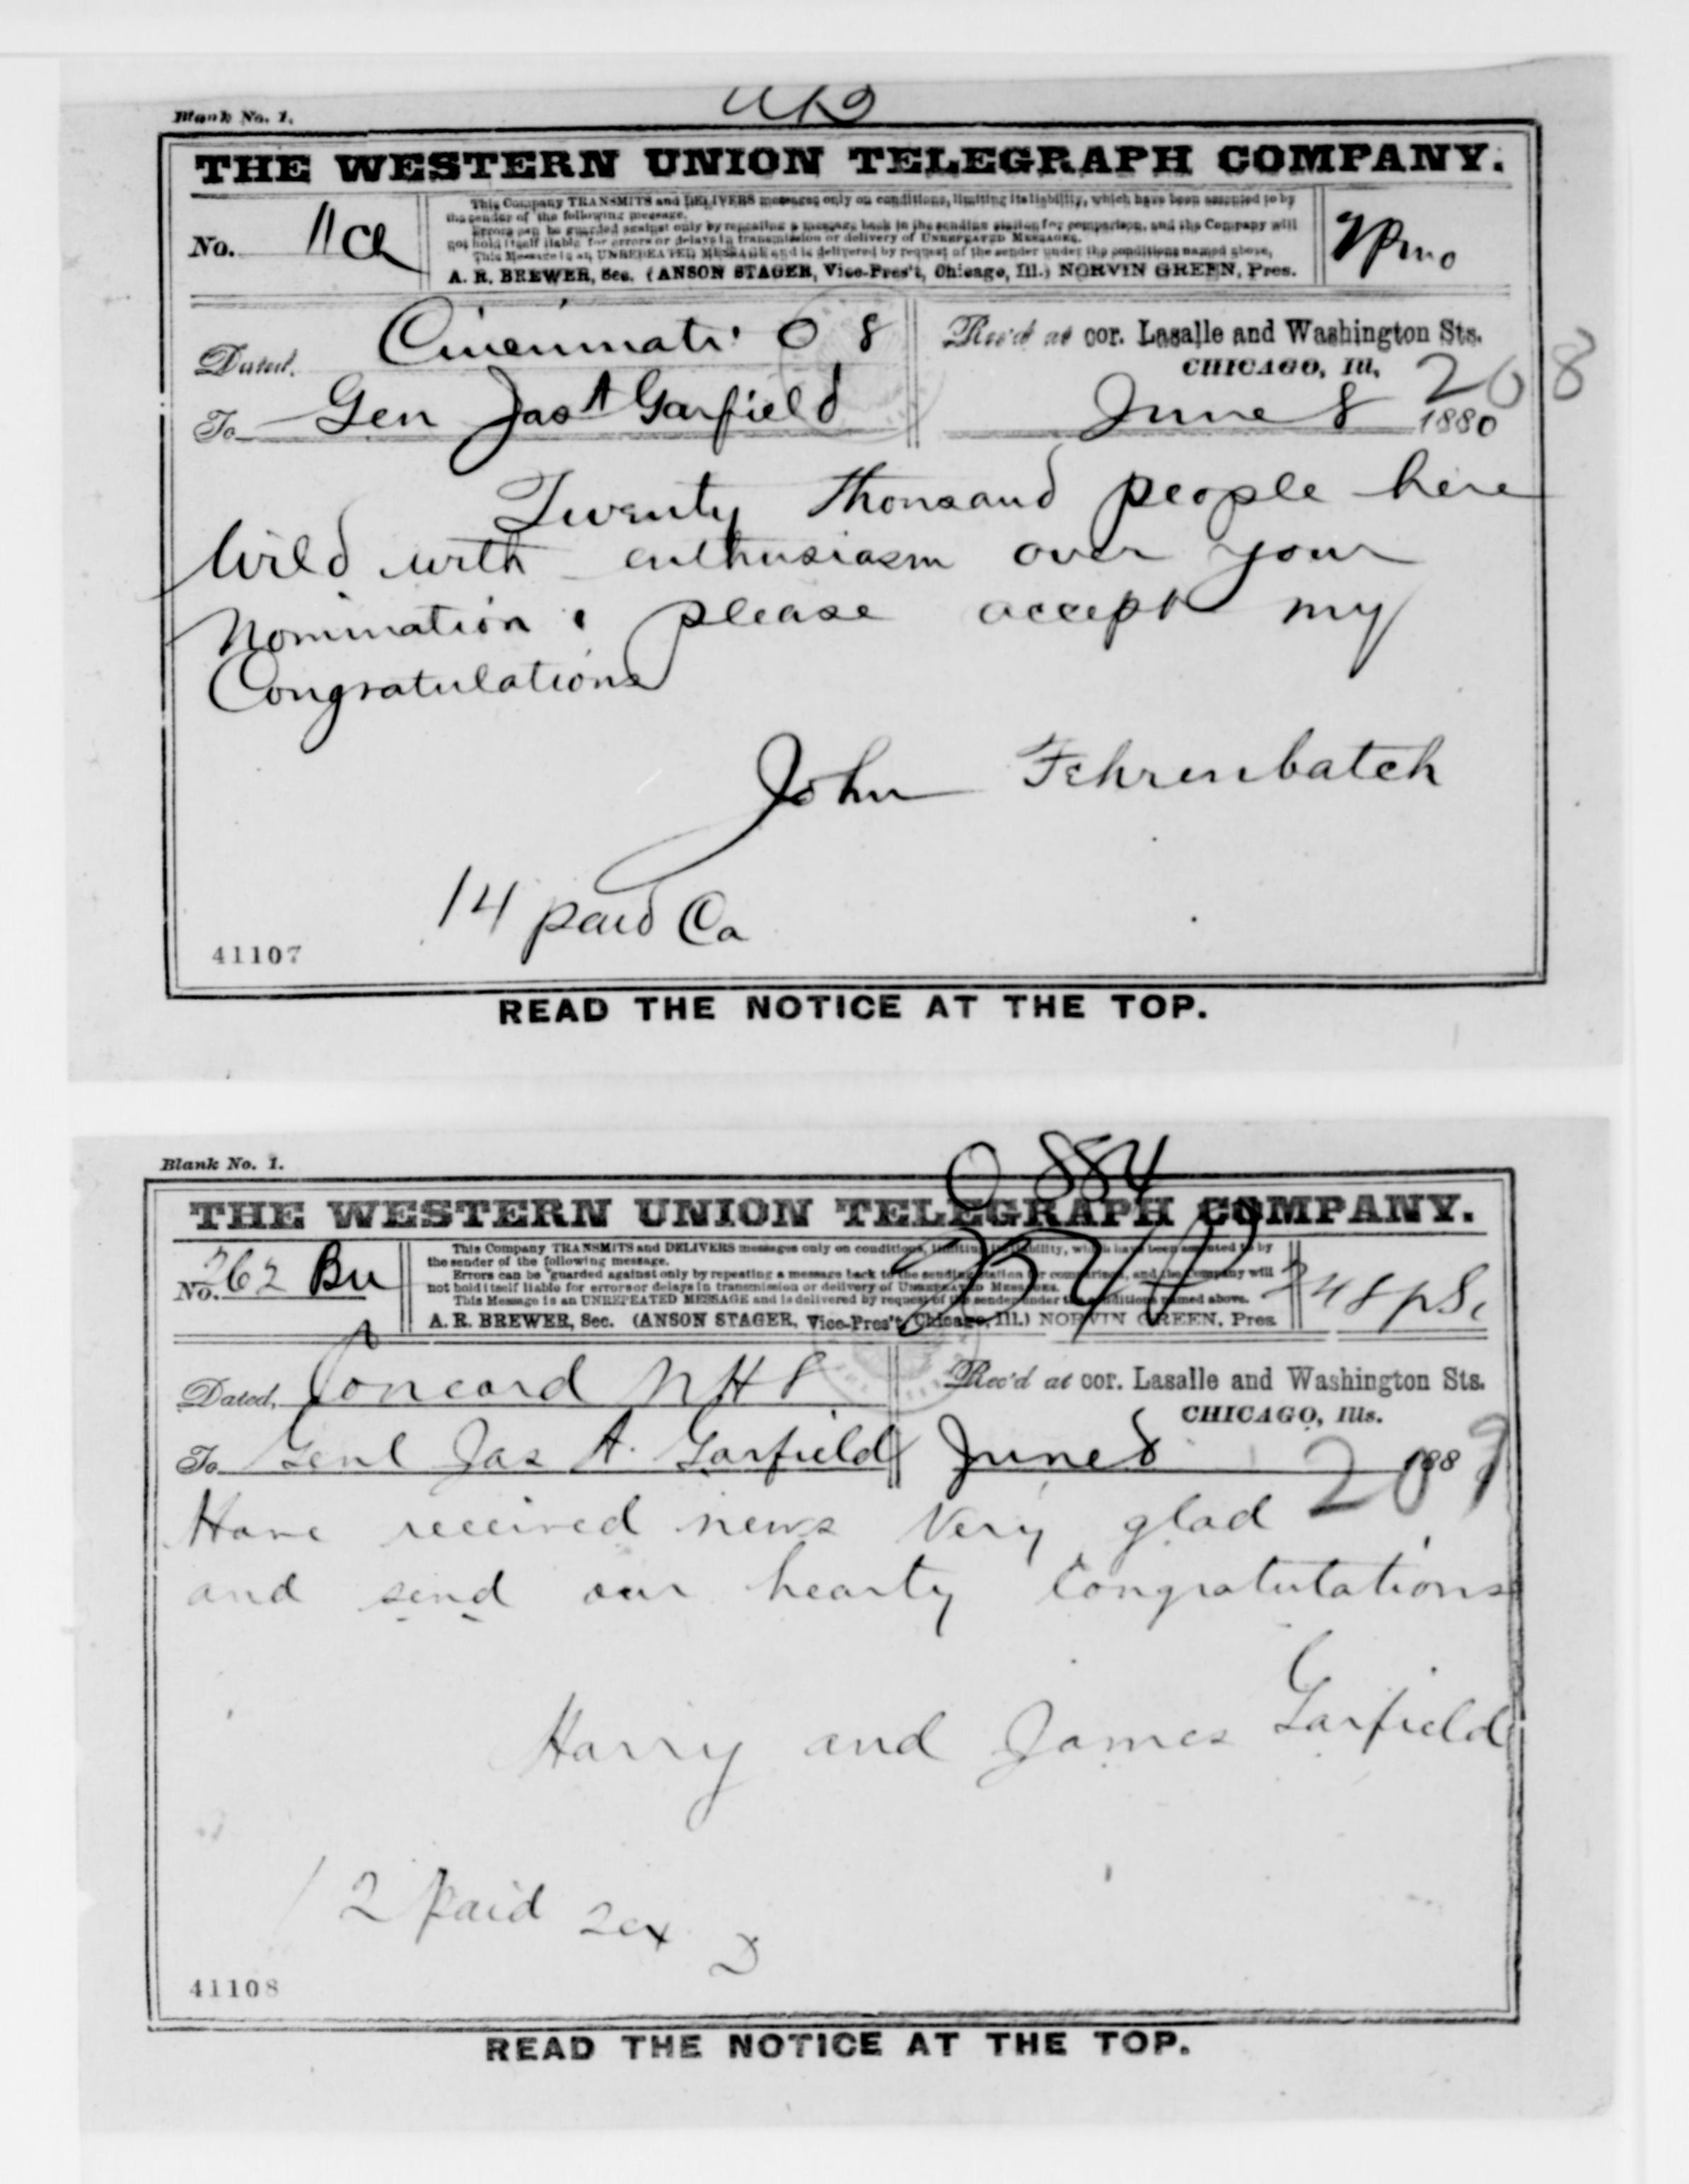 Blank No. 1.
THE WESTERN UNION TELEGRAPH COMPANY.
This Company TRANSMITS and DELIVERS messages only on conditions, limiting its liability, which have been assented to by
the sender of the following message.
Errors can be guarded against only by repeating a message back to the sending station for comparison, and the Company will
not hold itself liable for errors or delays in transmission or delivery of UNREPEATED MESSAGES.
This Message is an UNREPEATED MESSAGE and is delivered by request of the sender under the conditions named above,
A. R. BREWER, Sec. (ANSON STAGER, Vice-Pres't, Chicago, Ill.) NORVIN GREEN, Pres.
No. 11
Dated. Cincinnati O 8
Rec'd at cor. Lasalle and Washington Sts.
CHICAGO, Ill,
208
To Gen Jas A Garfield
June 8 1880
Twenty Thousand people here
Wild with enthusiasm over your
Nomination. please accept my
Congratulations
John Fehrenbatch
14 paid Ca
41107
READ THE NOTICE AT THE TOP.
Blank No. 1.
884
THE WESTERN UNION TELEGRAPH COMPANY.
This Company TRANSMITS and DELIVERS messages only on conditions, limiting its liability, which have been assented to by
the sender of the following message.
Errors can be guarded against only by repeating a message back to the sending station for comparison, and the Company will
not hold itself liable for errors or delays in transmission or delivery of UNREPEATED MESSAGES.
This Message is an UNREPEATED MESSAGE and is delivered by request of the sender under the conditions named above.
A. R. BREWER, Sec. (ANSON STAGER, Vice-Pres't, Chicago, Ill.) NORVIN GREEN, Pres
No. 262 Bu
Dated, Concord NH 8
Rec'd at cor. Lasalle and Washington Sts.
CHICAGO, Ills.
To Genl Jas A. Garfield
June 8 188
209
Have received news Very glad
and send our hearty Congratulations
Harry and James Garfield
12 paid
41108
READ THE NOTICE AT THE TOP.